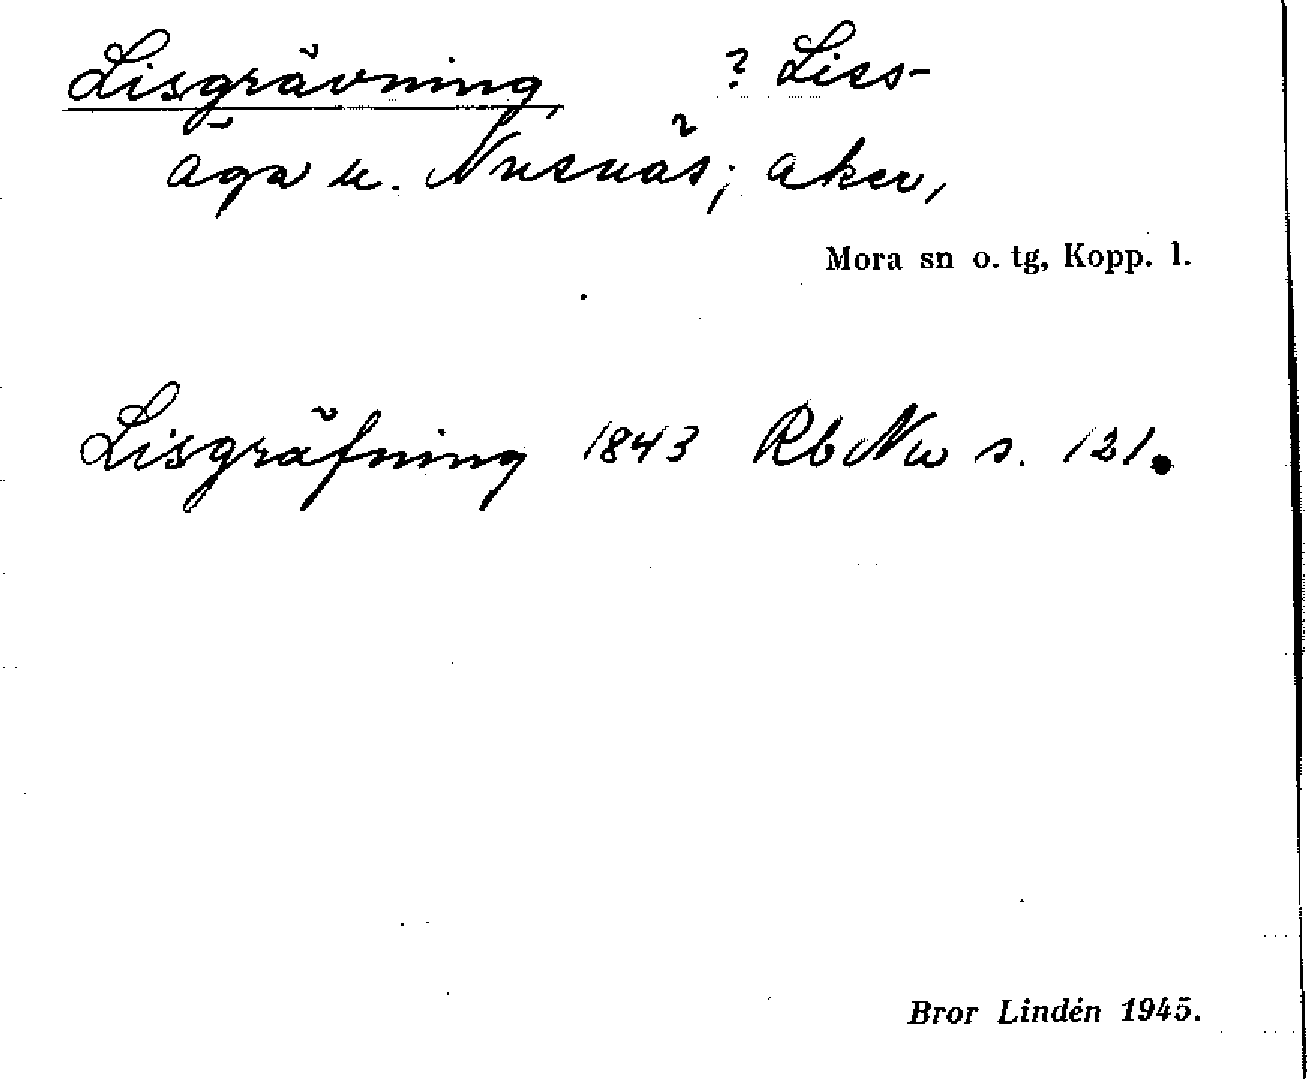 Lisgrävning ? Liss-
äga u. Nusnäs; åker,
Mora sn o. tg, Kopp. l.
Lisgräfning 1843 Rb Nu s. 121.
Bror Lindén 1945.